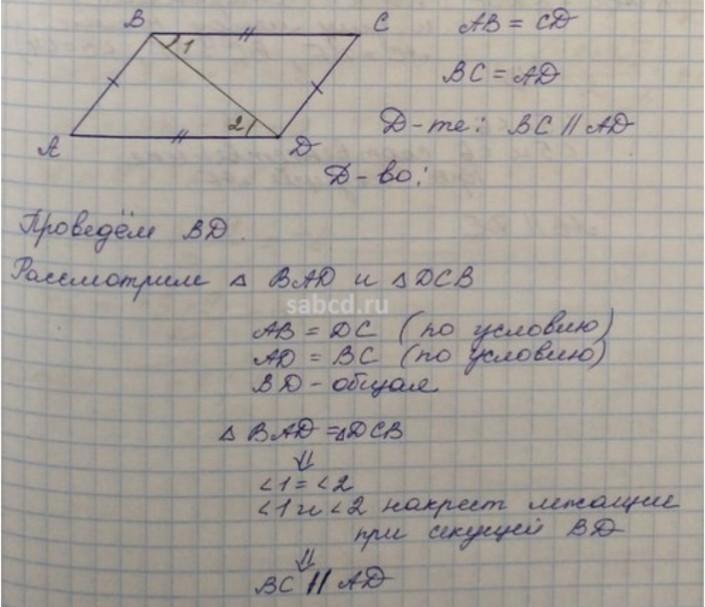 B
C
AB = CD
1
BC = AD
2
A
D
Д-те: BC || AD
Д-во:
Проведём BD.
Рассмотрим △ BAD и △DCB
sabcd.ru
AB = DC (по условию)
AD = BC (по условию)
BD - общая
△ BAD = △DCB
⇓
∠1 = ∠2
∠1 и ∠2 накрест лежащие
при секущей BD
⇓
BC || AD